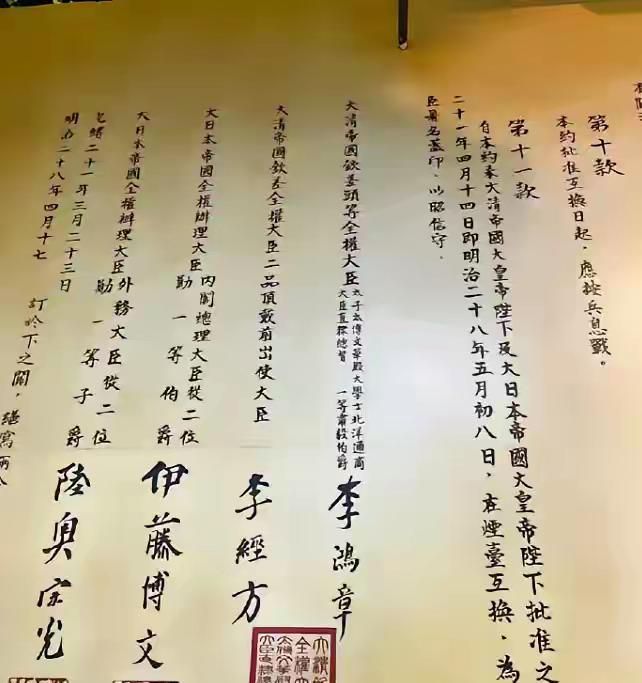 第十款
本約批准互換日起,應按兵息戰。
第十一款
自本約奉大清帝國大皇帝陛下及大日本帝國大皇帝陛下批准之
二十一年四月十四日即明治二十八年五月初八日,在煙臺互換,為
臣署名蓋印,以昭信守.
大清帝國欽差頭等全權大臣
太子太傅文華殿大學士北洋通商
大臣直隸總督 一等肅毅伯爵
李鴻章
大清帝國欽差全權大臣二品頂戴前出使大臣
李經方
大日本帝國全權辦理大臣
內閣總理大臣從二位
勛一等伯爵
伊藤博文
大日本帝國全權辦理大臣
外務大臣從二位
勛一等子爵
陸奧宗光
光緒二十一年三月二十三日
明治二十八年四月十七
訂於下之關,繕寫兩